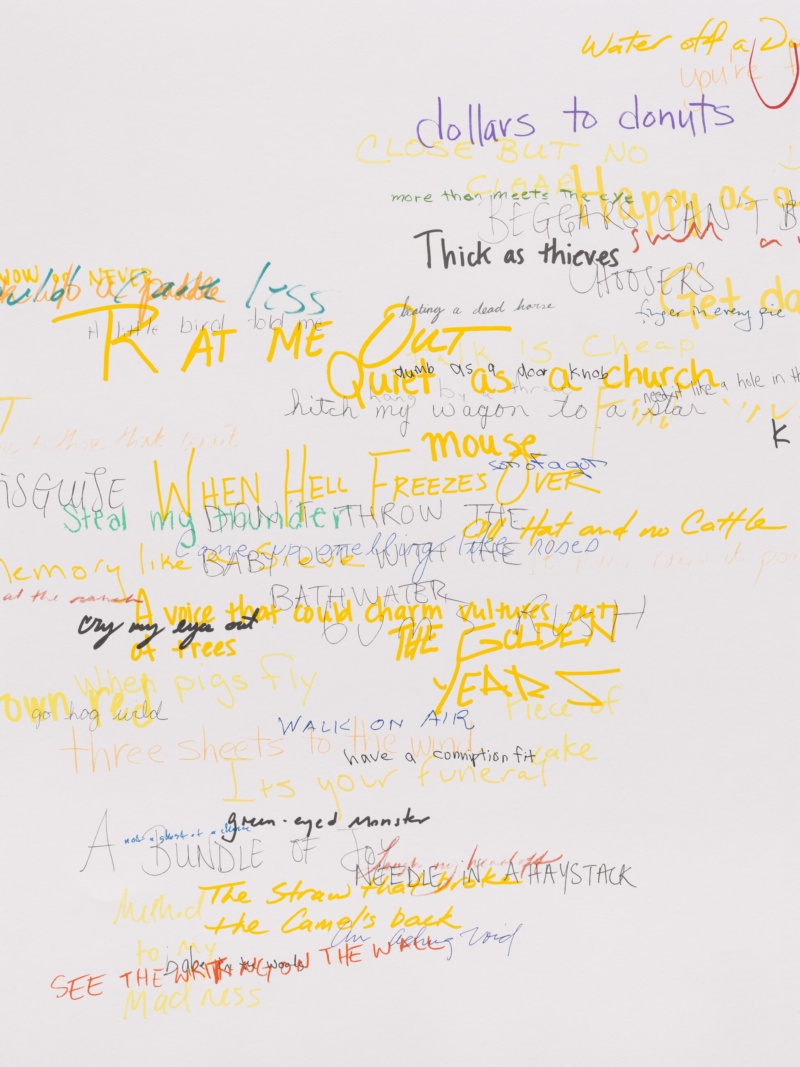 Water off a
you're
dollars to donuts
CLOSE BUT NO
CIGAR
more than meets the eye
Happy as a
BEGGARS CAN'T B
CHOOSERS
Thick as thieves
small
NOW OR NEVER
less
A little bird told me
RAT ME OUT
beating a dead horse
finger in every pie
Get da
Talk is Cheap
Quiet as a church
mouse
dumb as a door knob
hang by a thread
need it like a hole in th
hitch my wagon to a star
K
to those that wait
son of a gun
ISGUISE
WHEN HELL FREEZES OVER
Steal my thunder
DON'T THROW THE
BABY OUT WITH THE
BATHWATER
All Hat and no Cattle
Came up smelling like roses
Memory like a Sieve
at the ranch
A voice that could charm vultures out
of trees
cry my eyes out
THE GOLDEN
YEARS
When pigs fly
own
go hog wild
WALK ON AIR
Piece of
cake
three sheets to the wind
have a conniption fit
Its your funeral
green-eyed monster
not a ghost of a chance
A BUNDLE OF JOY
Laugh my head off
NEEDLE IN A HAYSTACK
The Straw that broke
the Camel's back
Method
to my
Madness
An aching void
SEE THE WRITING ON THE WALL